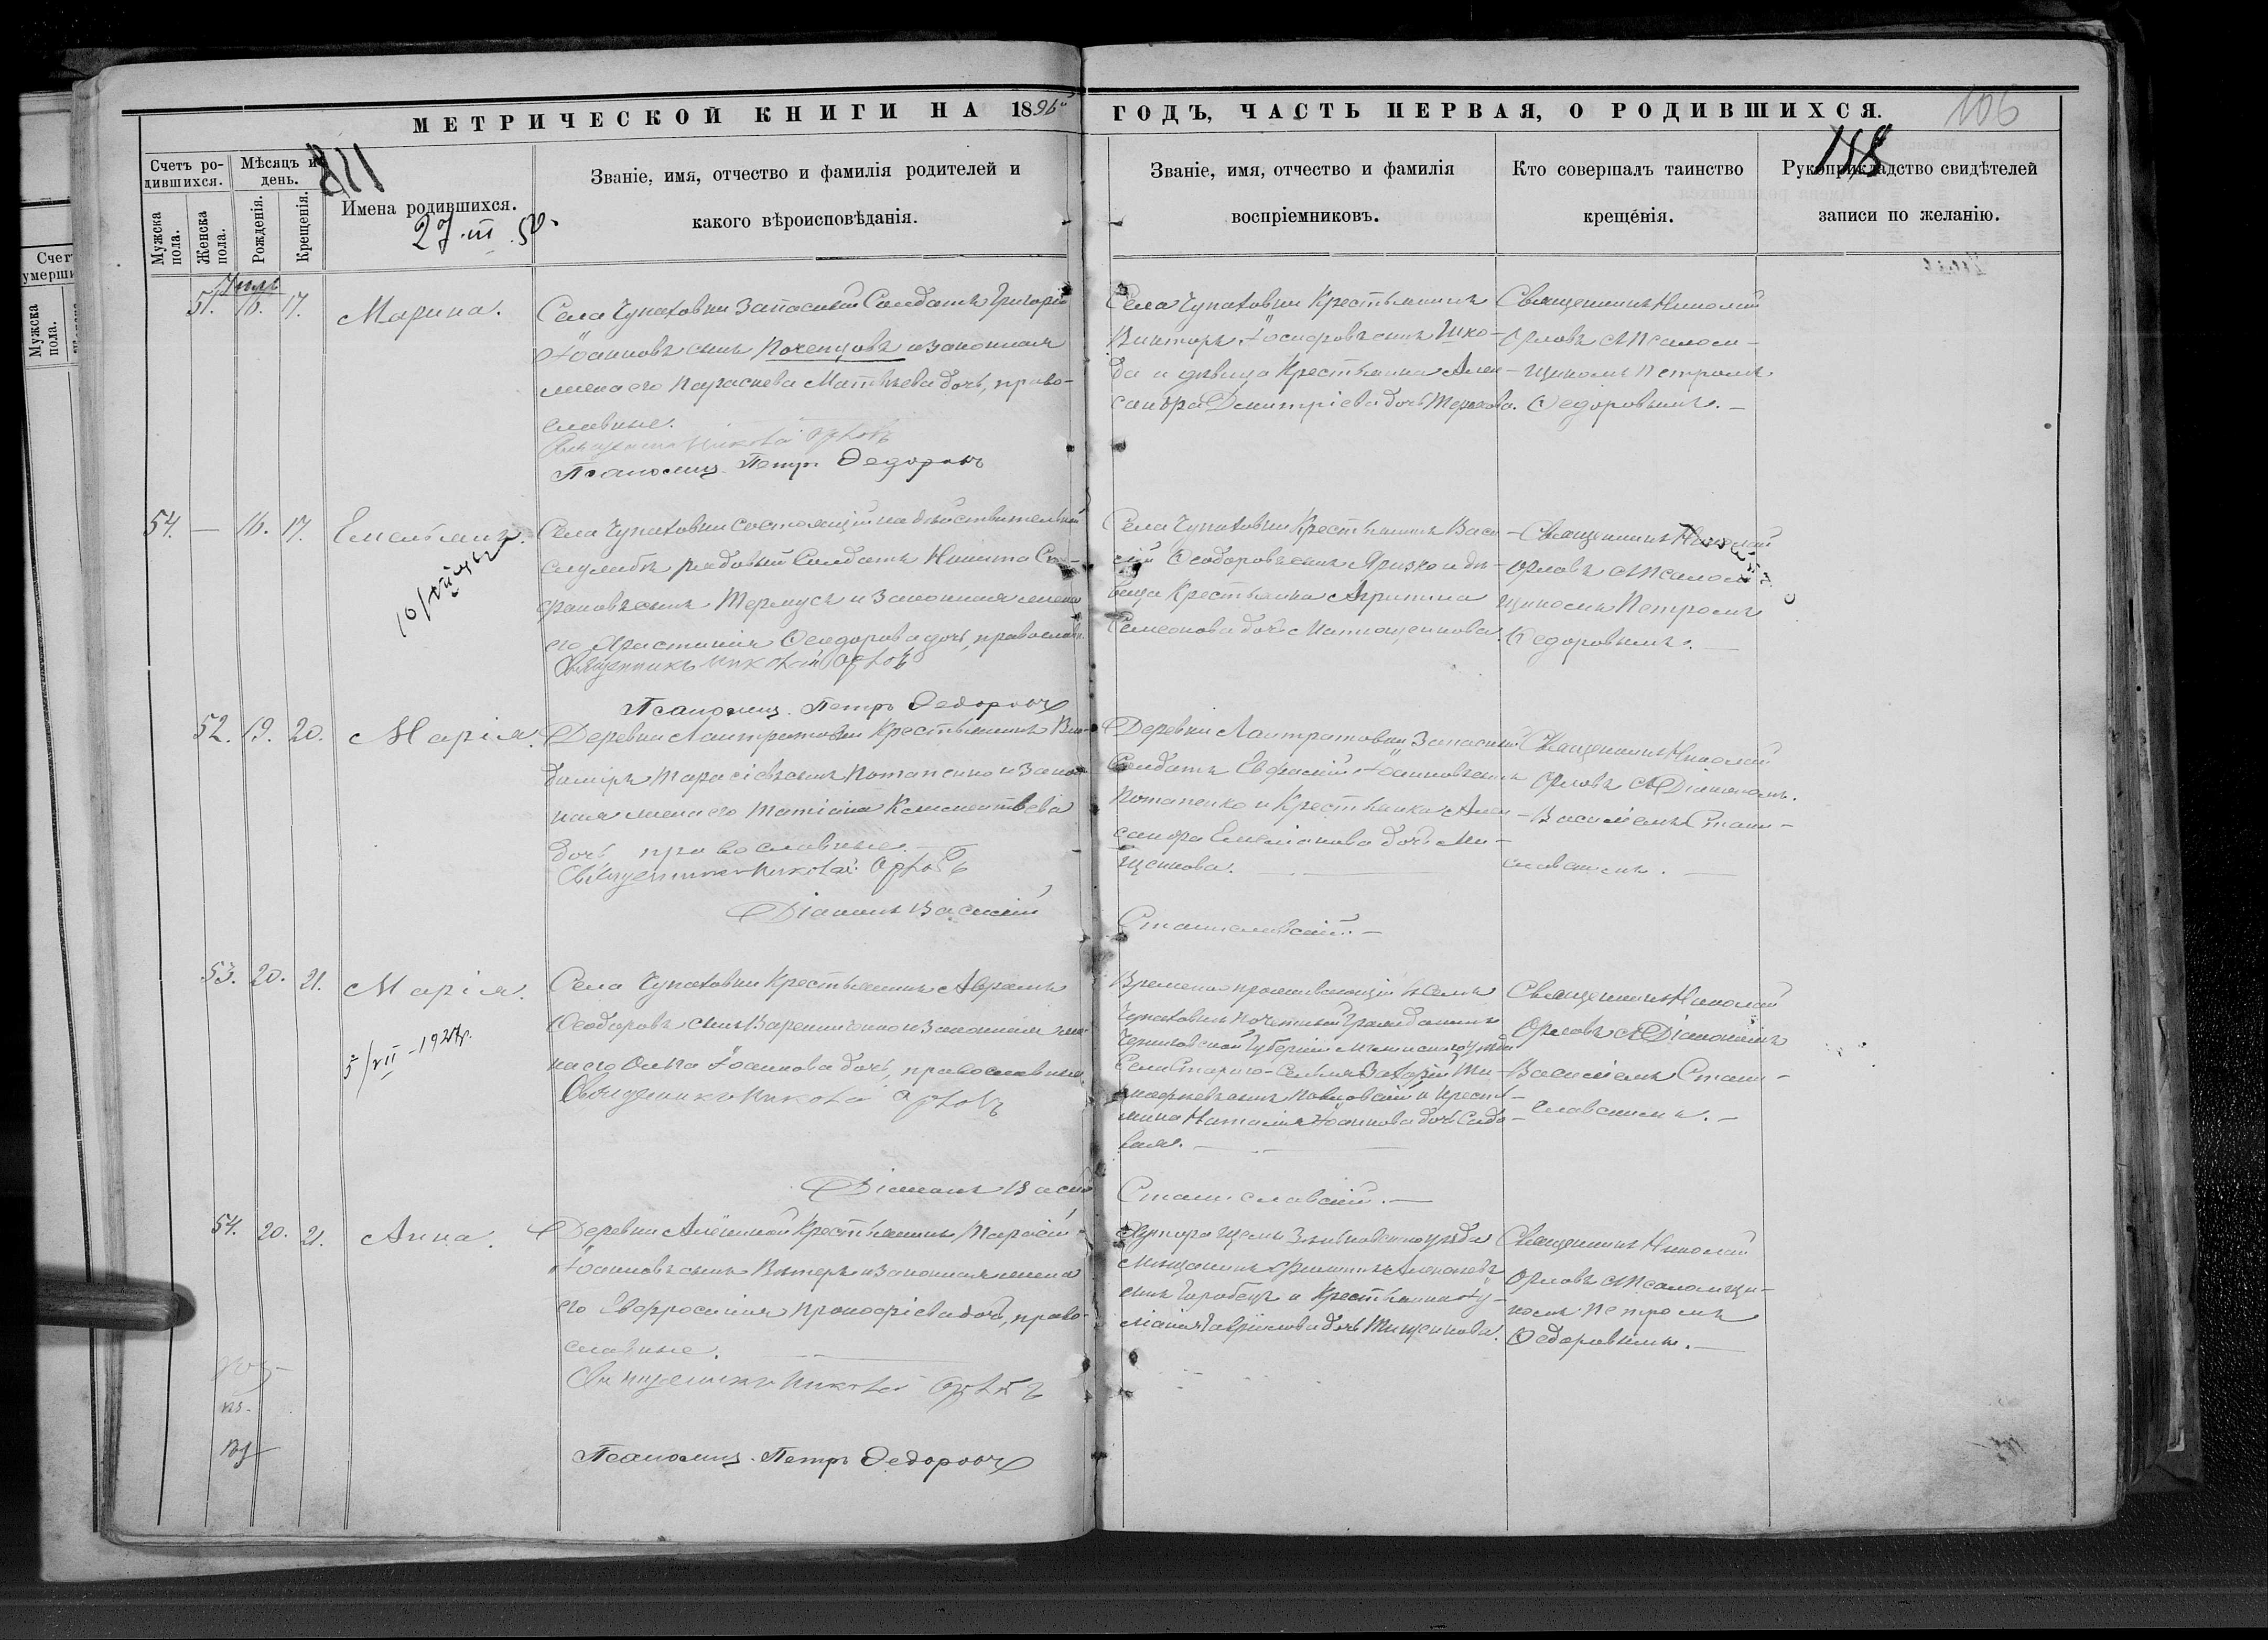 МЕТРИЧЕСКОЙ КНИГИ НА 1896й ГОДЪ, ЧАСТЬ ПЕРВАЯ, О РОДИВШИХСЯ.
106
118
Счетъ ро-
дившихся.
Мѣсяцъ и
день.
Мужска
пола.
Женска
пола.
Рожденія.
Крещенія.
Имена родившихся.
27.III.50.
Званіе, имя, отчество и фамилія родителей и
какого вѣроисповѣданія.
Званіе, имя, отчество и фамилія
воспріемниковъ.
Кто совершалъ таинство
крещенія.
Рукоприкладство свидѣтелей
записи по желанію.
Счет
умерши
Мужска
пола.
51. 16. 17. Марина.
Села Чупаховки Запасный Солдатъ Григорій
Іоанновъ сынъ Коченцовъ и законная
жена его Параскева Матѳѣева дочь, право-
славные.
Священникъ Николай Орловъ
Псаломщ. Петръ Федоровъ
Села Чупаховки Крестьянинъ
Викторъ Іосифовъ сынъ Шко-
да и дѣвица Крестьянка Алек-
сандра Димитріева дочь
Священникъ Николай
Орловъ съ Псалом-
щикомъ Петромъ
Федоровымъ.
54. — 16. 17. Емельянъ.
Села Чупаховки состоящій на дѣйствительной
службѣ рядовый Солдатъ Никита
сынъ и законная жена
его Христинія Ѳеодорова дочь, православн.
Священникъ Николай Орловъ
Псаломщ. Петръ Федоровъ
Села Чупаховки Крестьянинъ Васи-
лій Ѳеодоровъ сынъ Яризко и дѣ-
вица Крестьянка Агрипина
Симеонова дочь
Священникъ Николай
Орловъ съ Псалом-
щикомъ Петромъ
Федоровымъ.
52. 19. 20. Марія.
Деревни Лантратовки Крестьянинъ Вла-
диміръ Тарасіевъ сынъ Потапенко и закон-
ная жена его Татіана Климентіева
дочь, православные.
Священникъ Николай Орловъ
Діаконъ Василій
Деревни Лантратовки Запасный
Солдатъ Іоанновъ сынъ
Потапенко и Крестьянка Алек-
сандра Емеліанова дочь Ми-
щенкова.
Станиславскій.
Священникъ Николай
Орловъ съ Діакономъ
Василіемъ Стани-
славскимъ.
53. 20. 21. Марія.
5/VII-1927г.
Села Чупаховки Крестьянинъ Аврамъ
Ѳеодоровъ сынъ Варениченко и законная же-
на его Ольга Іоаннова дочь, православные.
Священникъ Николай Орловъ
Діаконъ Васил
Временно проживающій въ селѣ
Чупаховкѣ почетный Гражданинъ
Черниговской Губерніи
Захарій Ти-
моѳеевъ сынъ и Кресть-
янка Наталія Іоаннова дочь Садо-
вая.
Станиславскій.
Священникъ Николай
Орловъ съ Діакономъ
Василіемъ Стани-
славскимъ.
54. 20. 21. Анна.
Деревни Алёшиной Крестьянинъ Тарасій
Іоанновъ сынъ Вѣтеръ и законная жена
его Евфросинія Проко­фіева дочь, право-
славные.
Священникъ Николай Орловъ
Псаломщ. Петръ Федоровъ
Хутора Щемъ Зѣньковскаго уѣзда
Мѣщанинъ Филиппъ
сынъ Горобецъ и Крестьянка Іу-
ліанія Гавріилова дочь Тищенкова.
Священникъ Николай
Орловъ съ Псаломщи-
комъ Петромъ
Ѳедоровымъ.